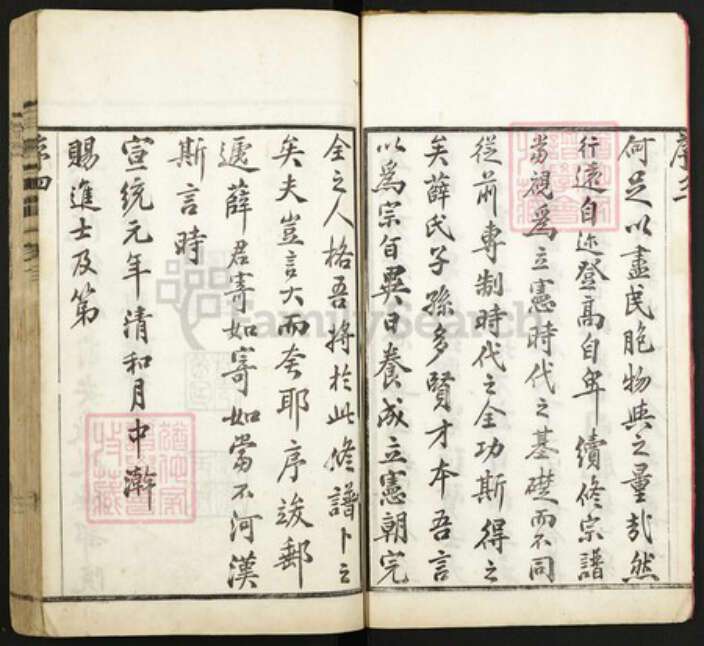 何足以盡民胞物與之量哉然
行遠自迩登高自卑續修宗譜
當視為立憲時代之基礎而不同
從前專制時代之全功斯得之
矣薛氏子孫多賢才本吾言
以為宗旨異日養成立憲朝完
全之人格吾將於此修譜卜之
矣夫豈言大而夸耶序竣郵
遞薛君寄如寄如當不河漢
斯言時
宣統元年清和月中澣
賜進士及第
FamilySearch